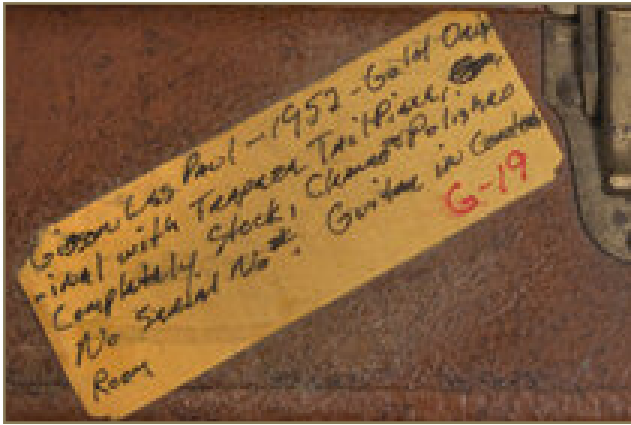 Gibson Les Paul - 1952 - Gold Orig
-inal with Trapeze TailPiece,
Completely Stock, Cleaned + Polished
No Serial No#. Guitar in Control
Room
G-19